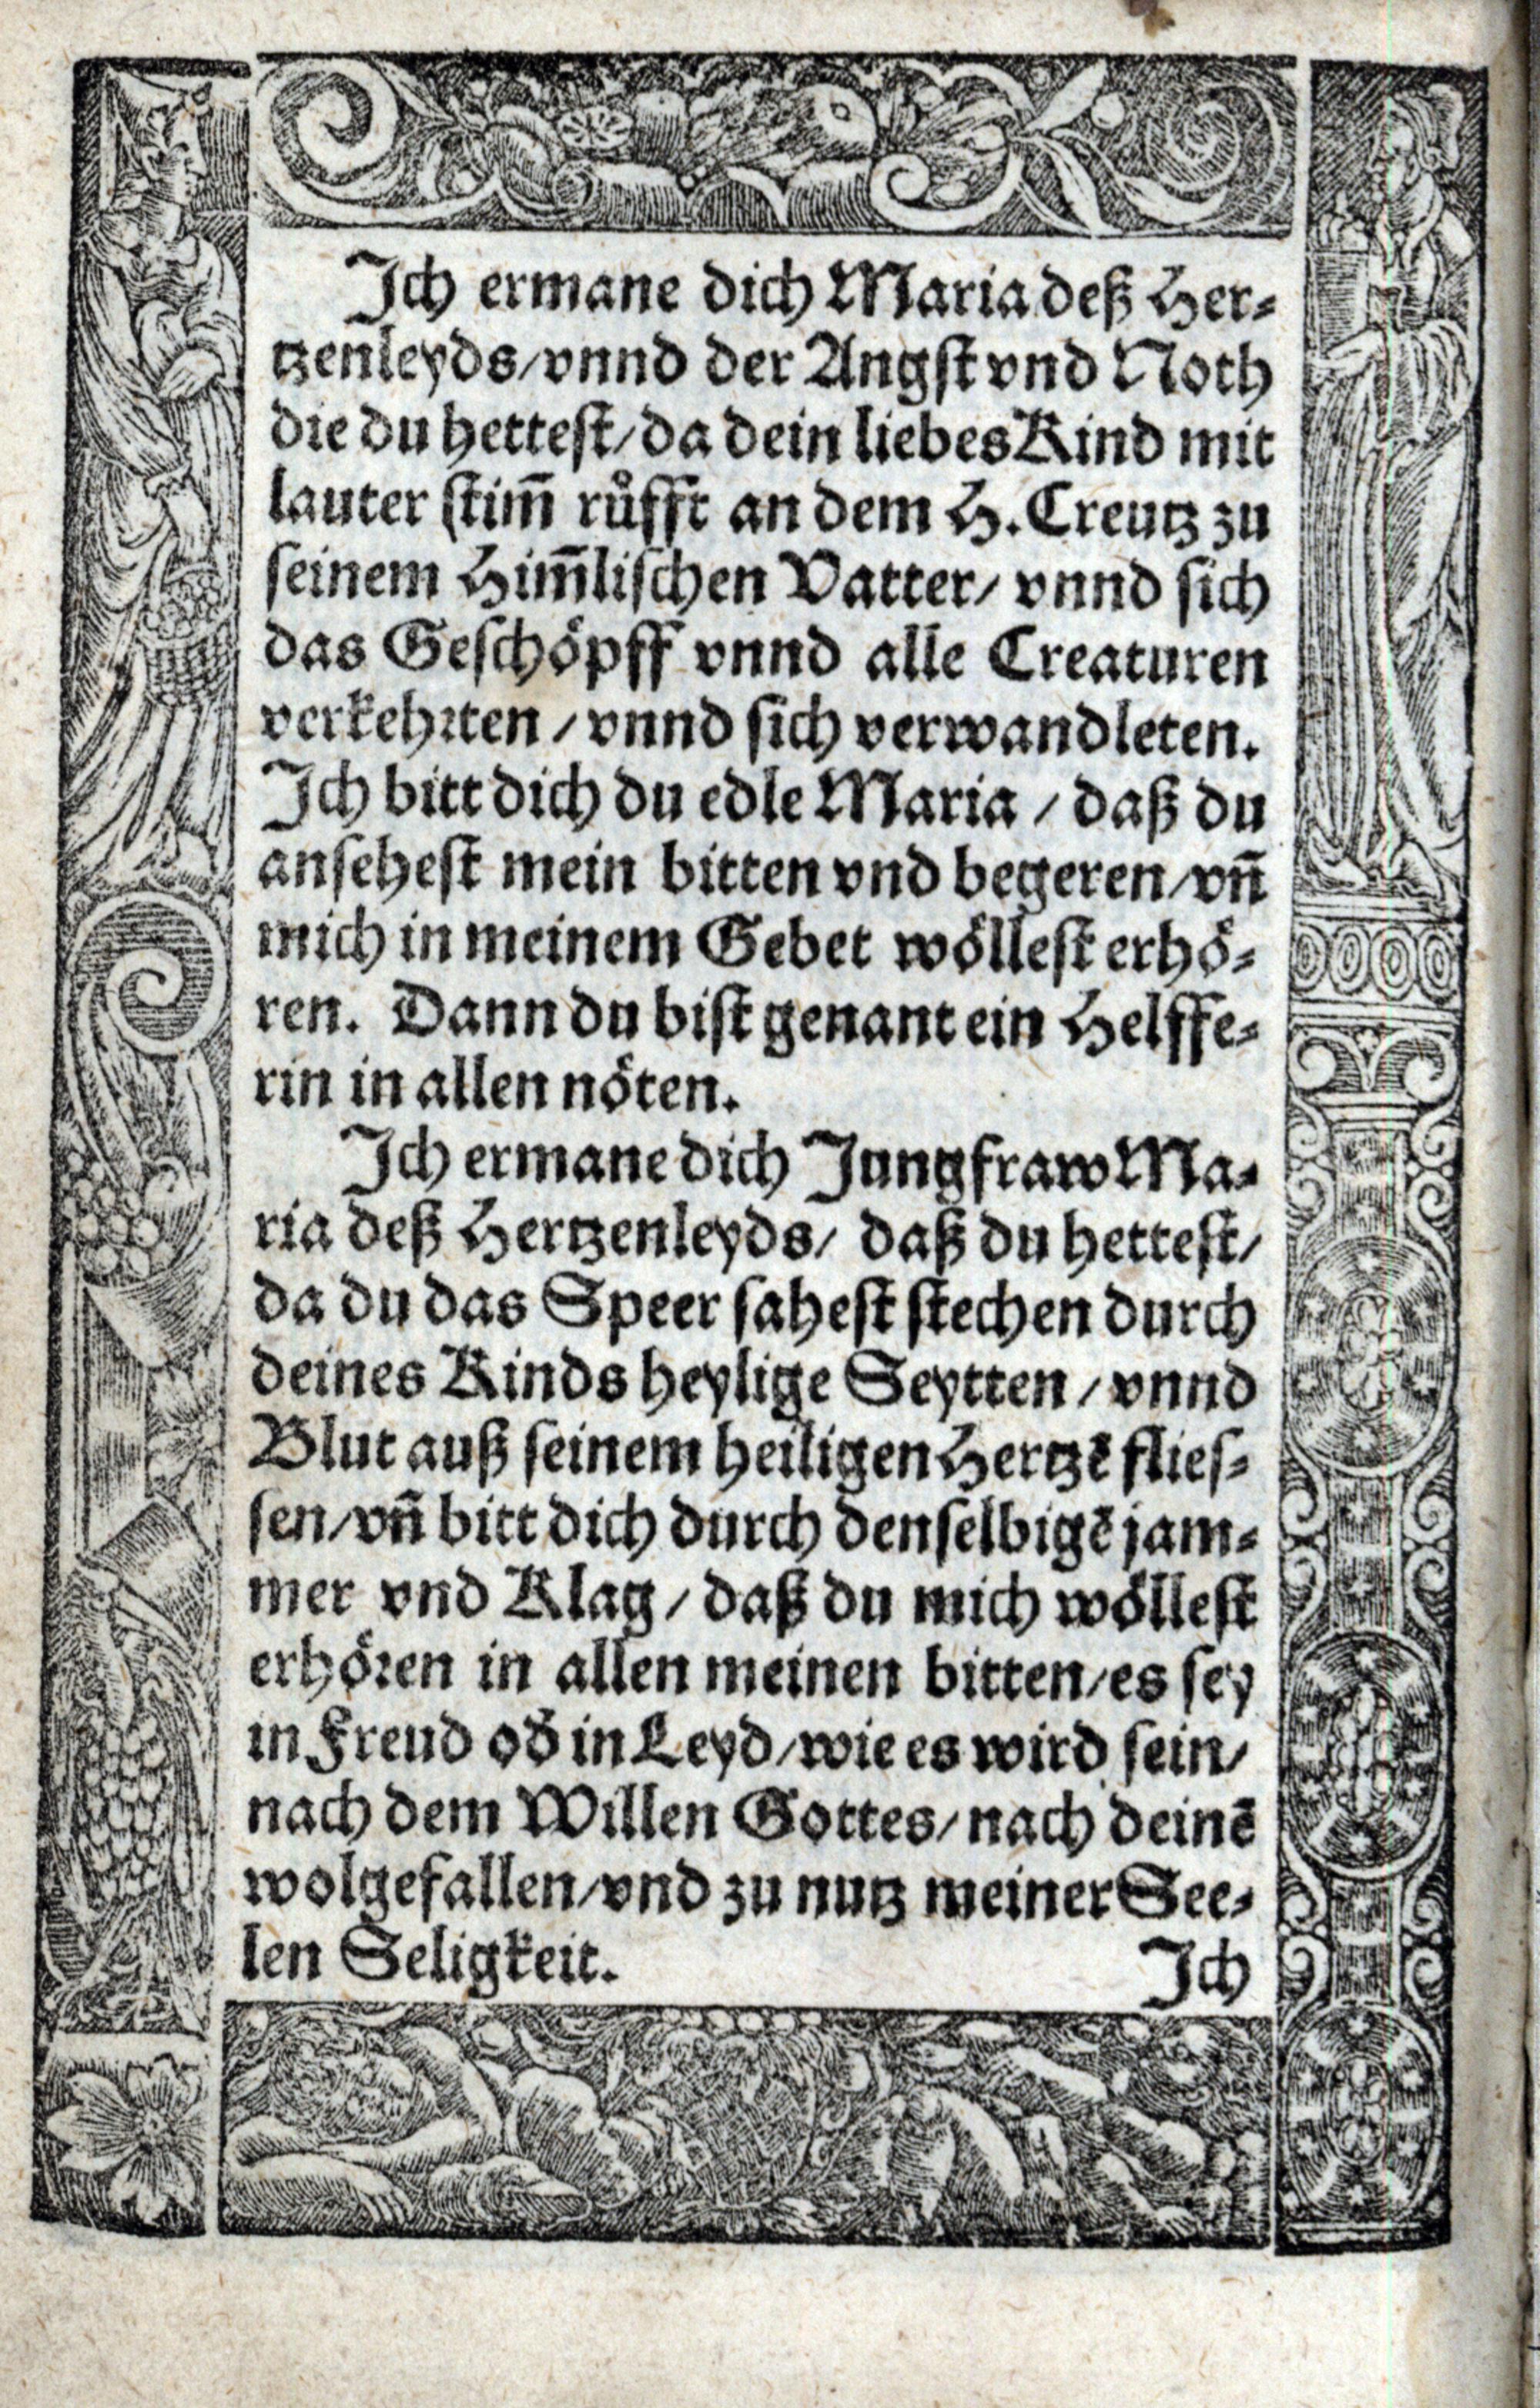 Ich ermane dich Maria deß Her⸗
tzenleyds/vnnd der Angst vnd Noth
die du hettest/da dein liebes Kind mit
lauter stim̃ růfft an dem H. Creutz zu
seinem Him̃lischen Vatter/ vnnd sich
das Geschöpff vnnd alle Creaturen
verkehrten / vnnd sich verwandleten.
Ich bitt dich du edle Maria / daß du
ansehest mein bitten vnd begeren/vñ
mich in meinem Gebet wöllest erhö⸗
ren. Dann du bist genant ein Helffe⸗
rin in allen nöten.
Ich ermane dich Jungfraw Ma⸗
ria deß Hertzenleyds/ daß du hettest/
da du das Speer sahest stechen durch
deines Kinds heylige Seytten / vnnd
Blut auß seinem heiligen Hertzẽ flies⸗
sen/vñ bitt dich durch denselbigẽ jam⸗
mer vnd Klag / daß du mich wöllest
erhören in allen meinen bitten/es sey
in Freud od̃ in Leyd/wie es wird sein/
nach dem Willen Gottes/nach deinẽ
wolgefallen/vnd zu nutz meiner See⸗
len Seligkeit.
Ich